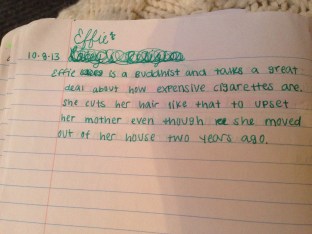 Effie's
10-8-13
Effie is a Buddhist and talks a great
deal about how expensive cigarettes are.
She cuts her hair like that to upset
her mother even though she moved
out of her house two years ago.